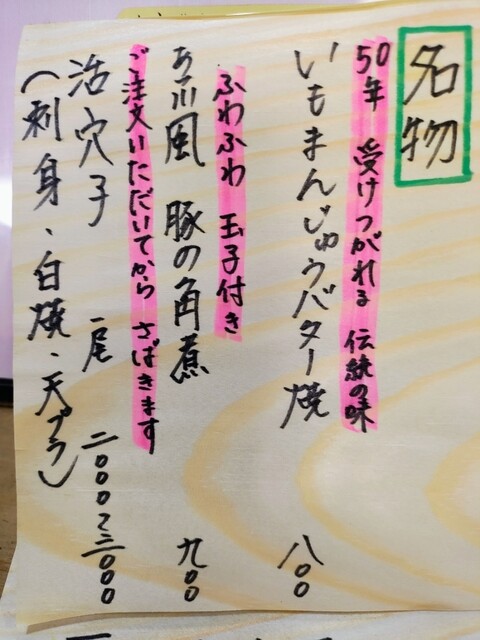 名物
50年 受けつがれる 伝統の味
いもまんじゅうバター焼 八00
ふわふわ 玉子付き
あ川風 豚の角煮 九00
ご注文いただいてから さばきます
活穴子 一尾 二000〜三000
(刺身、白焼、天プラ)